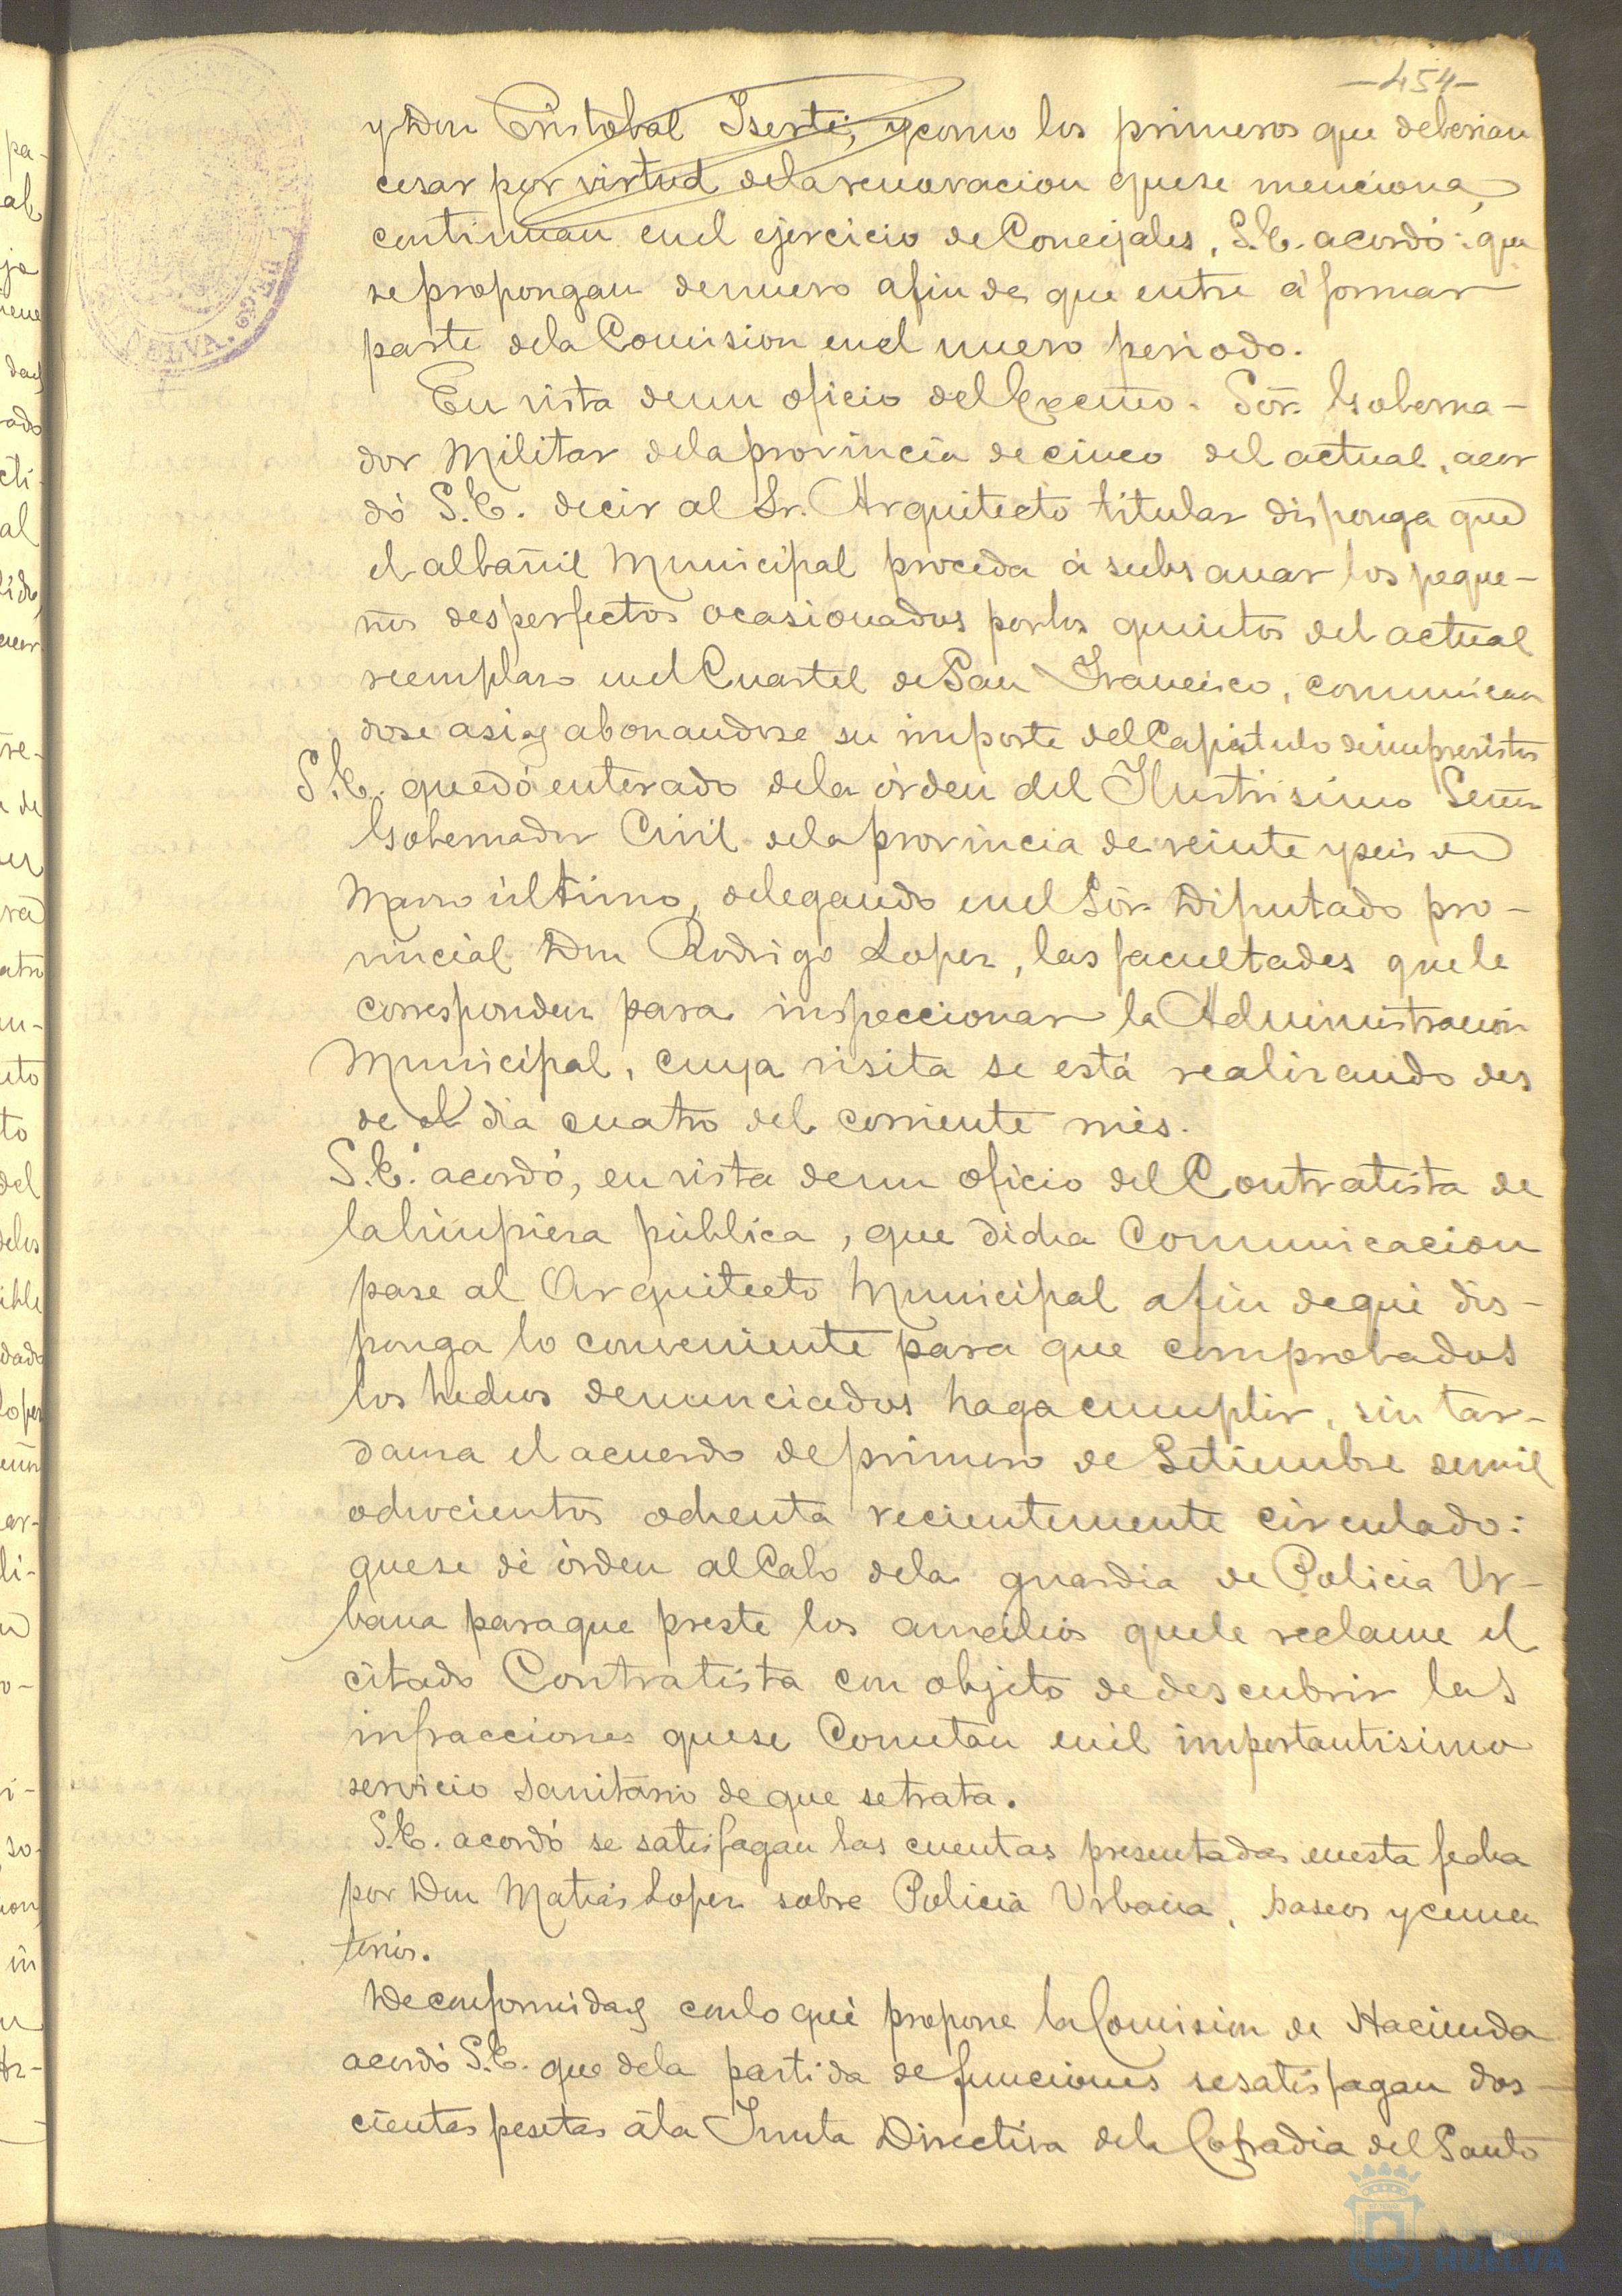 -454-
y Don Cristobal Iserte, y como los primeros que deberian
cesar por virtud de la renovacion que se menciona,
continuan en el ejercicio de Concejales, S.E. acordó: que
se propongan de nuevo afin de que entre á formar
parte de la Comision en el nuevo periodo.
En vista de un oficio del Excmo. Sor. Goberna-
dor Militar de la provincia de cinco del actual, acor
dó S.E. decir al Sr. Arquitecto titular disponga que
el albañil Municipal proceda á subsanar los peque-
ños desperfectos ocasionados por los quintos del actual
reemplazo en el Cuartel de San Francisco, comunican
dose asi y abonandose su importe del Capitulo de imprevistos
S.E. quedó enterado de la órden del Ilustrisimo Señor
Gobernador Civil de la provincia de veinte y seis de
Marzo último, delegando en el Sor. Diputado pro-
vincial Don Rodrigo Lopez, las facultades que le
corresponden para inspeccionar la Administracion
Municipal, cuya visita se está realizando des
de el dia cuatro del corriente mes.
S.E. acordó, en vista de un oficio del Contratista de
la limpieza pública, que dicha Comunicacion
pase al Arquitecto Municipal afin de que dis-
ponga lo conveniente para que comprobados
los hechos denunciados haga cumplir, sin tar-
danza el acuerdo de primero de Setiembre de mil
ochocientos ochenta recientemente circulado:
que se dé órden al Cabo de la guardia de Policia Ur-
bana para que preste los aucilios que le reclame el
citado Contratista con objeto de descubrir las
infracciones que se Cometan en el importantisimo
servicio Sanitario de que se trata.
S.E. acordó se satisfagan las cuentas presentadas en esta fecha
por Don Matias Lopez sobre Policia Urbana, paseos y cemen
terios.
De conformidad con lo que propone la Comision de Hacienda
acordó S.E. que de la partida de funciones se satisfagan dos-
cientas pesetas á la Junta Directiva de la Cofradia del Santo
Ayuntamiento
HUELVA